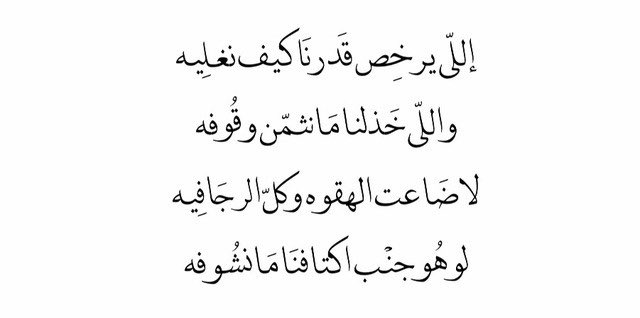 إللّي يرخِص قَدرنَا كيف نغلِيه
واللّي خَذلنا مَا نثمّن وقُوفه
لا ضَاعت الهقوه وكلّ الرجَا فِيه
لو هُو جنْب اكتافنَا مَا نشُوفه